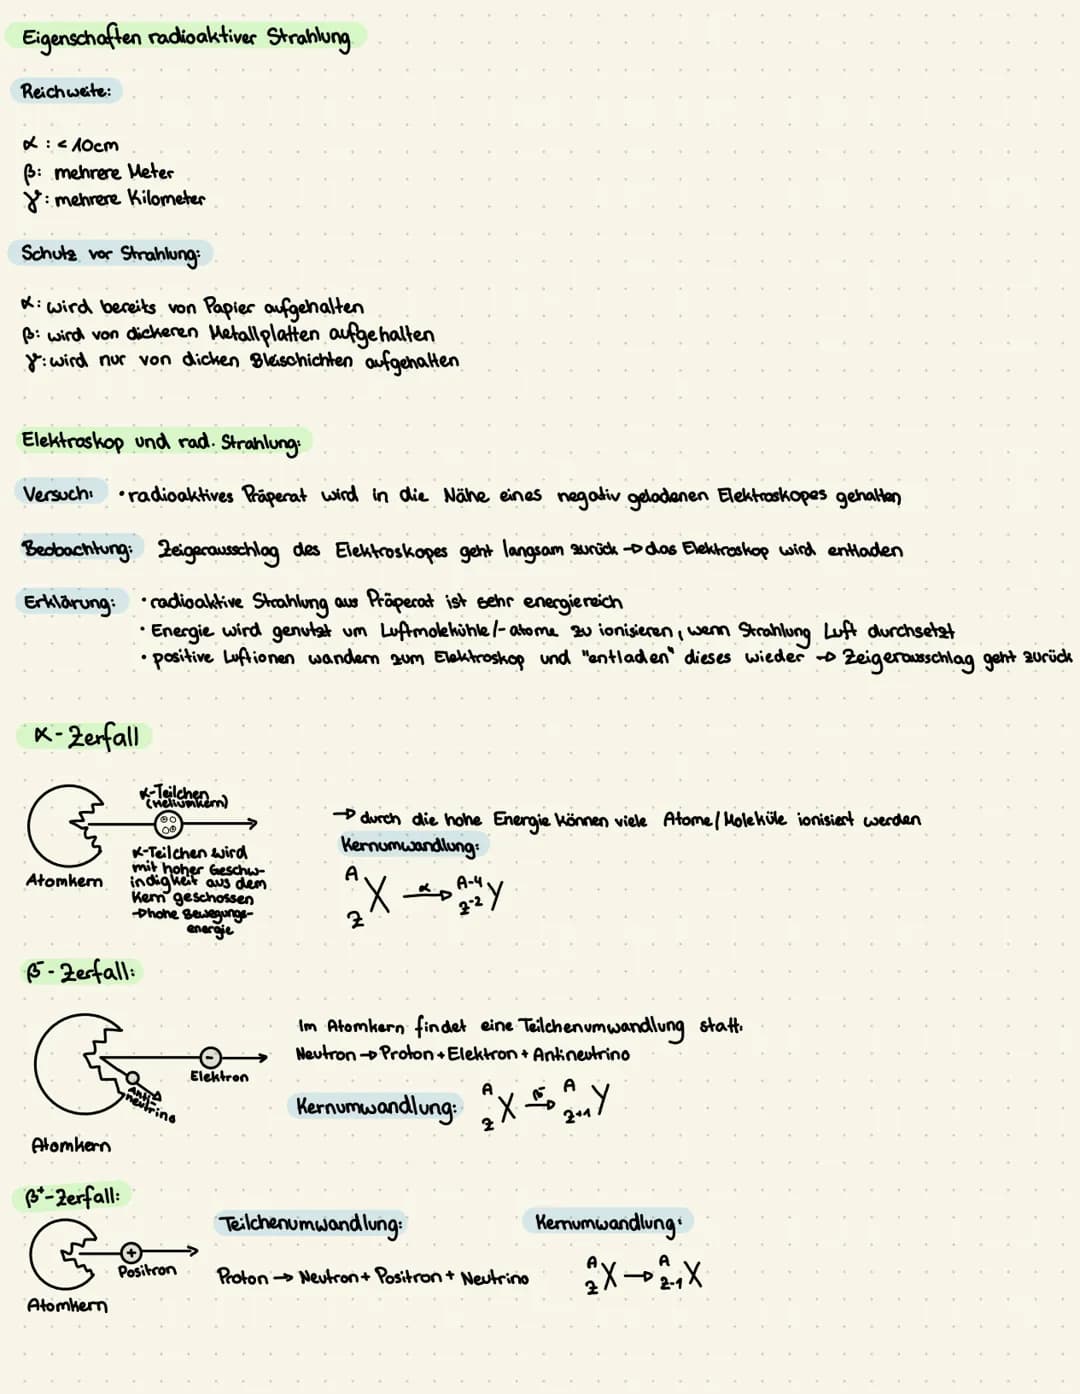 Eigenschaften radioaktiver Strahlung
Reichweite:
α : < 10cm
β: mehrere Meter
γ: mehrere Kilometer
Schutz vor Strahlung:
α: wird bereits von Papier aufgehalten
β: wird von dickeren Metallplatten aufgehalten
γ: wird nur von dicken Bleischichten aufgehalten
Elektroskop und rad. Strahlung:
Versuch: • radioaktives Präperat wird in die Nähe eines negativ geladenen Elektroskopes gehalten
Beobachtung: Zeigerausschlag des Elektroskopes geht langsam zurück → das Elektroskop wird entladen
Erklärung: • radioaktive Strahlung aus Präperat ist sehr energiereich
• Energie wird genutzt um Luftmolekühle/-atome zu ionisieren, wenn Strahlung Luft durchsetzt
• positive Luftionen wandern zum Elektroskop und "entladen" dieses wieder → Zeigerausschlag geht zurück
α - Zerfall
α-Teilchen
(Heliumkern)
α-Teilchen wird
mit hoher Geschw-
indigkeit aus dem
Kern geschossen
→ hohe Bewegungs-
energie
Atomkern
→ durch die hohe Energie können viele Atome/Moleküle ionisiert werden
Kernumwandlung:
A Z X α → A-4 Z-2 Y
β⁻ - Zerfall:
Elektron
Anti-
neutrino
Atomkern
Im Atomkern findet eine Teilchenumwandlung statt.
Neutron → Proton + Elektron + Antineutrino
Kernumwandlung: A Z X β⁻ → A Z+1 Y
β⁺-Zerfall:
Positron
Atomkern
Teilchenumwandlung:
Proton → Neutron + Positron + Neutrino
Kernumwandlung:
A Z X → A Z-1 X